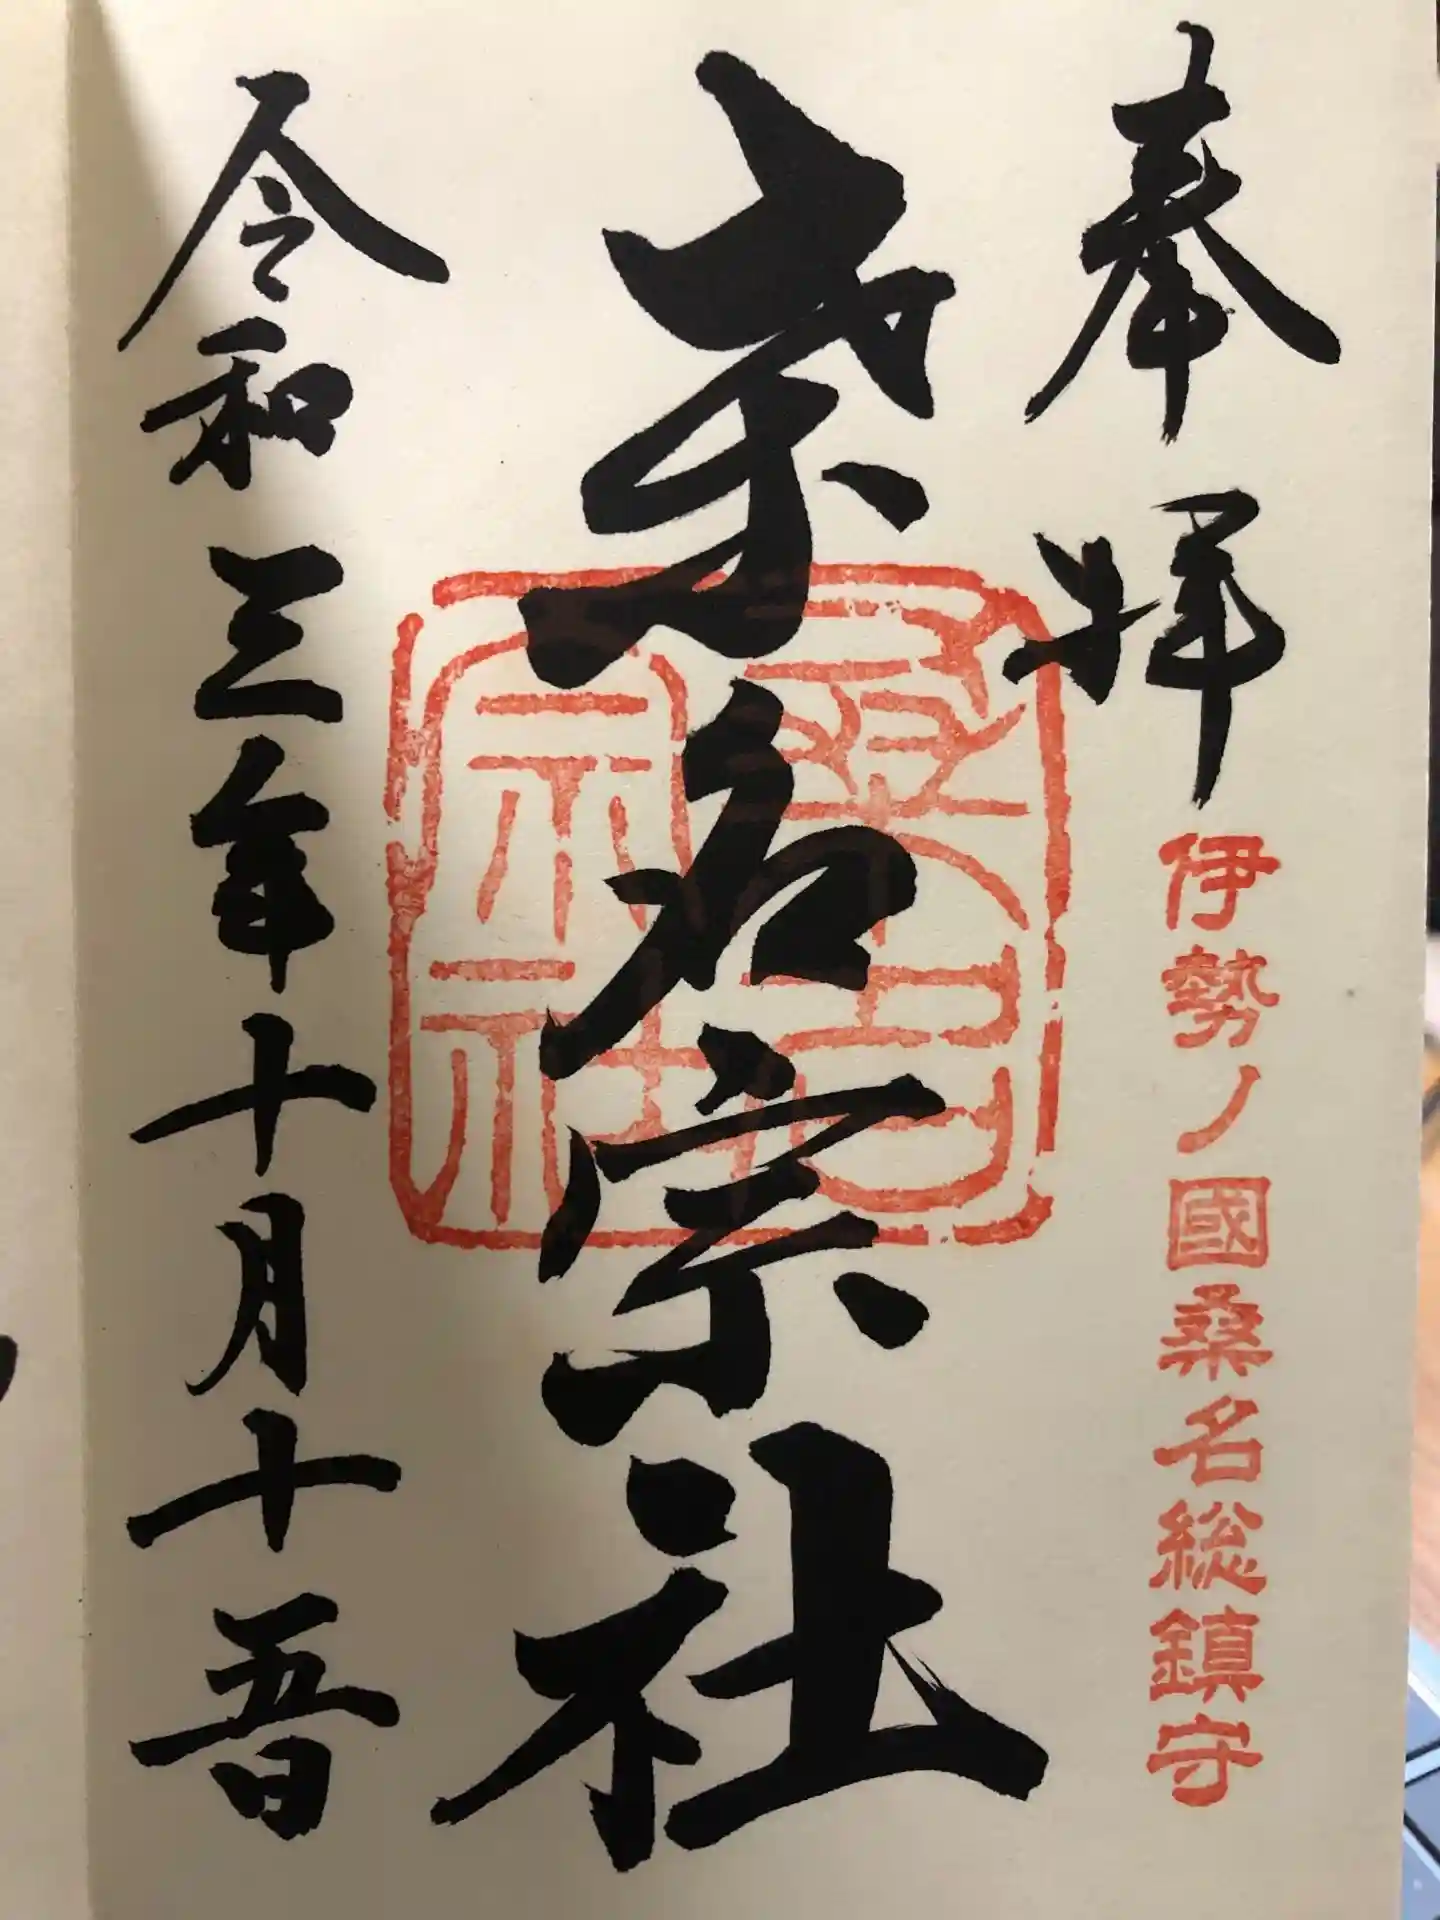 奉拝
伊勢ノ國桑名総鎮守
桒名宗社
桑名宗社
令和三年十月十五日